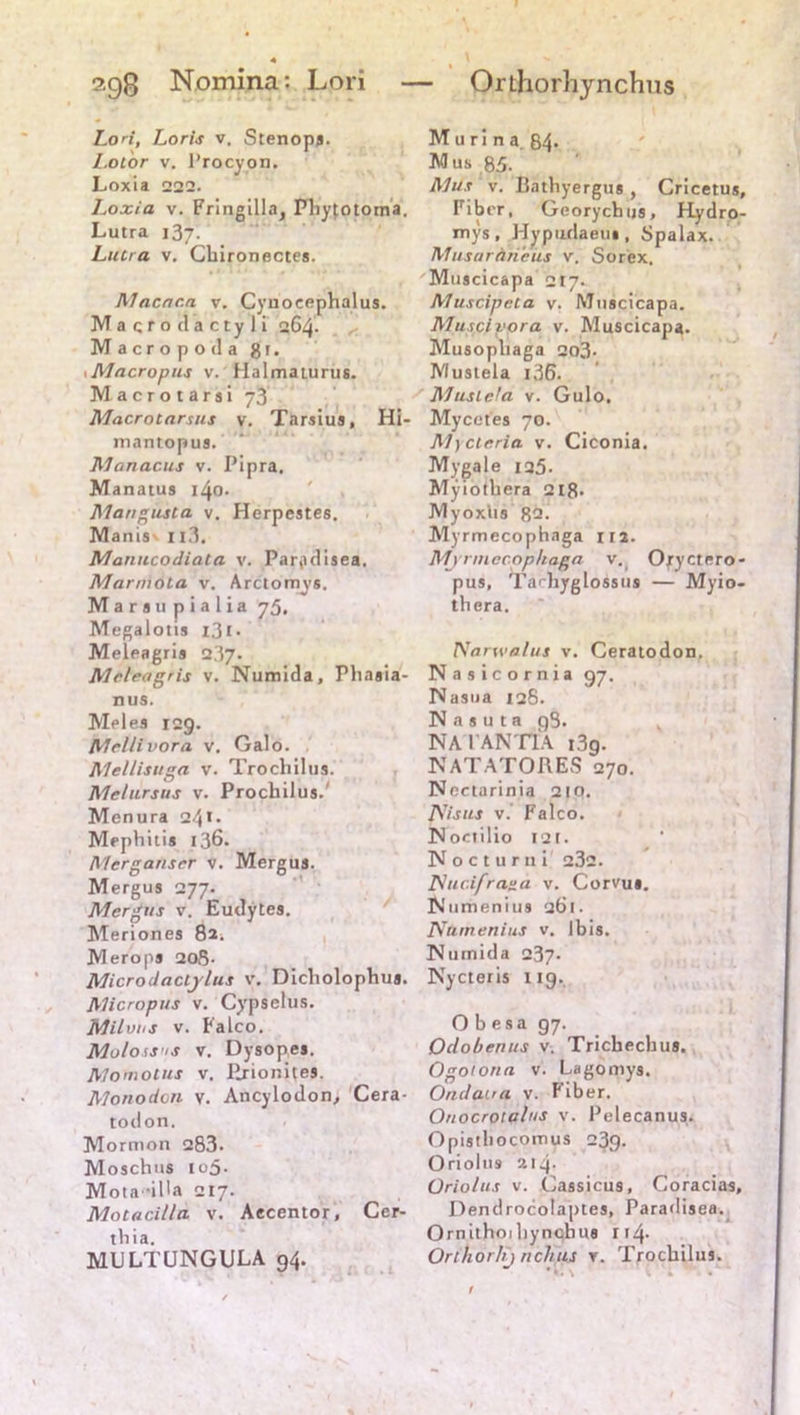 298 Nomina: Lori — Orthorhynchus
Lori, Loris v. Stenops.
Lotor v. Procyon.
Loxia 222.
Loxia v. Fringilla, Phytotoma.
Lutra 137.
Lutra v. Chironectes.
Macaca v. Cynocephalus.
Macrodactyli 264.
Macropoda 81.
Macropus v. Halmaturus.
Macrotarsi 73
Macrotarsus v. Tarsius, Hi-
mantopus.
Manacus v. Pipra.
Manatus 140.
Mangusta v. Herpestes.
Manis 113.
Manucodiata v. Paradisea.
Marmota v. Arctomys.
Marsupialia 75.
Megalotis 131.
Meleagris 237.
Meleagris v. Numida, Phasia-
nus.
Meles 129.
Mellivora v. Galo.
Mellisuga v. Trochilus.
Melursus v. Prochilus.
Menura 241.
Mephitis 136.
Merganser v. Mergus.
Mergus 277.
Mergus v. Eudytes.
Meriones 82.
Merops 208.
Microdactylus v. Dicholophus.
Micropus v. Cypselus.
Milvus v. Falco.
Molossus v. Dysopes.
Momotus v. Prionites.
Monodon v. Ancylodon, Cera-
todon.
Mormon 283.
Moschus 105.
Motacilla 217.
Motacilla v. Accentor, Cer-
thia.
MULTUNGULA 94.
Murina 84.
Mus 85.
Mus v. Bathyergus, Cricetus,
Fiber, Georychus, Hydro-
mys, Hypudaeus, Spalax.
Musaraneus v. Sorex.
Muscicapa 217.
Muscipeta v. Muscicapa.
Muscivora v. Muscicapa.
Musophaga 203.
Mustela 136.
Mustela v. Gulo.
Mycetes 70.
Mycteria v. Ciconia.
Mygale 125.
Myiothera 218.
Myoxus 82.
Myrmecophaga 112.
Myrmecophaga v. Orycteropus, Tachyglossus — Myio-
thera.
Narwalus v. Ceratodon.
Nasicornia 97.
Nasua 128.
Nasuta 98.
NATANTIA 139.
NATATORES 270.
Nectarinia 210.
Nisus v. Falco.
Noctilio 121.
Nocturni 232.
Nucifraga v. Corvus.
Numenius 261.
Numenius v. Ibis.
Numida 237.
Nycteris 119.
Obesa 97.
Odobenus v. Trichechus.
Ogotona v. Lagomys.
Ondatra v. Fiber.
Onocrotalus v. Pelecanus.
Opisthocomus 239.
Oriolus 214.
Oriolus v. Cassicus, Coracias,
Dendrocolaptes, Paradisea.
Ornithorhynchus 114.
Orthorhynchus v. Trochilus.